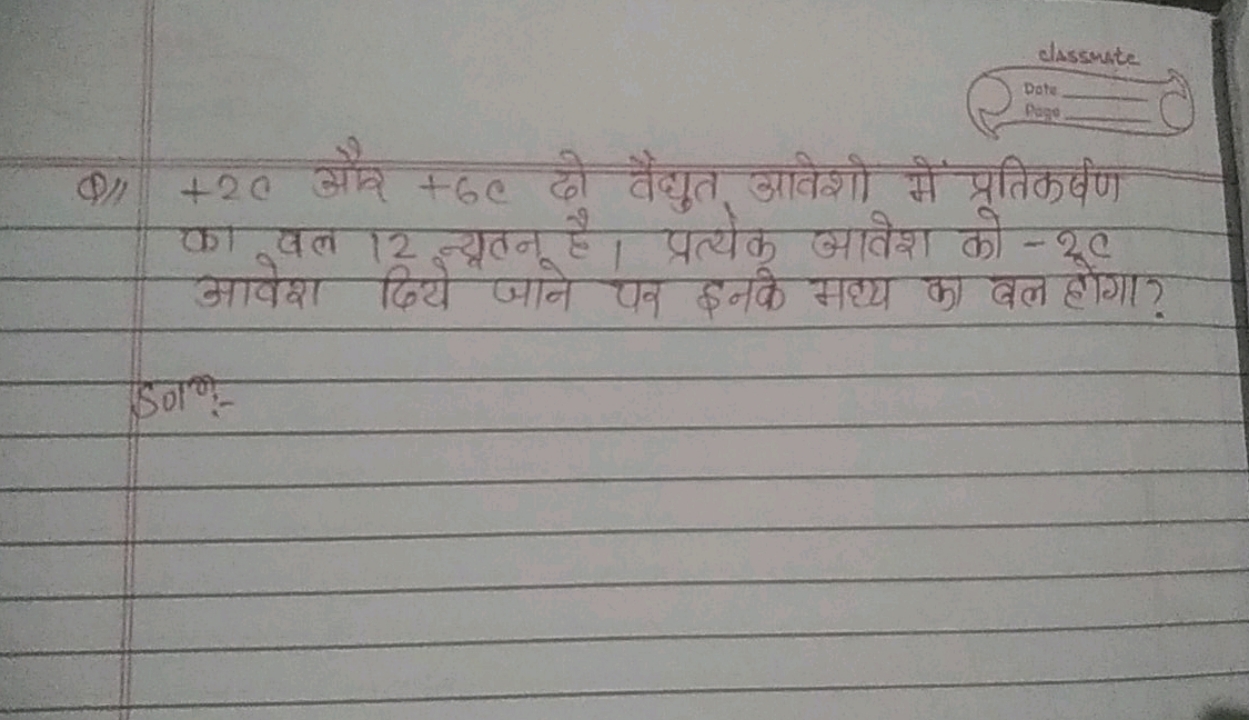 classmate
Date
Page
Q// +2C और +6C दो वैद्युत आवेशो में प्रतिकर्षण
का बल 12 न्यूटन है। प्रत्येक आवेश को -2C
आवेश दिये जाने पर इनके मध्य का बल होगा?
Solⁿ:-